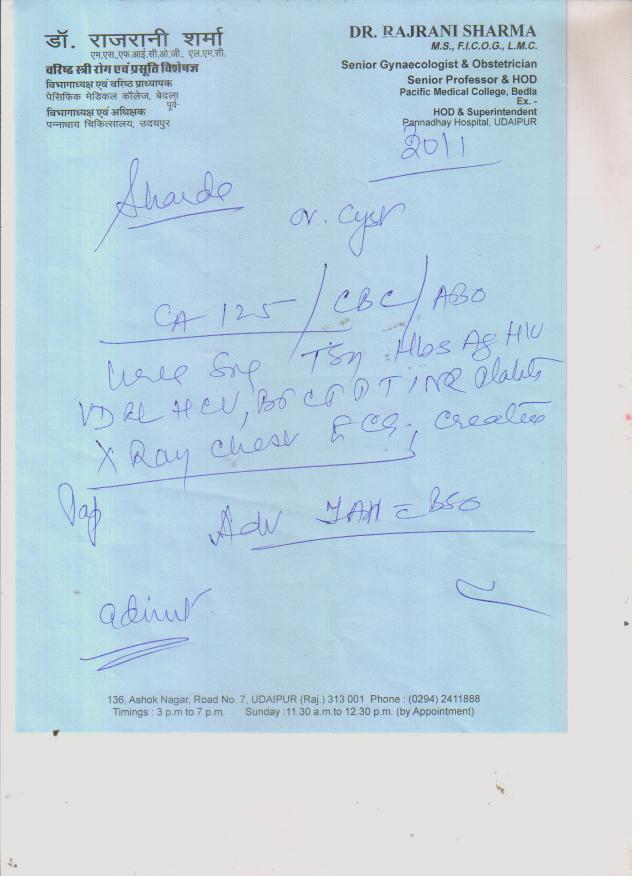 डॉ. राजरानी शर्मा
एम.एस.,एफ.आई.सी.ओ.जी., एल.एम.सी.
वरिष्ठ स्त्री रोग एवं प्रसूति विशेषज्ञ
विभागाध्यक्ष एवं वरिष्ठ प्राध्यापक
पेसिफिक मेडिकल कॉलेज, बेदला
पूर्व-
विभागाध्यक्ष एवं अधिक्षक
पन्नाधाय चिकित्सालय, उदयपुर
DR. RAJRANI SHARMA
M.S., F.I.C.O.G., L.M.C.
Senior Gynaecologist & Obstetrician
Senior Professor & HOD
Pacific Medical College, Bedla
Ex. -
HOD & Superintendent
Pannadhay Hospital, UDAIPUR
2011
ov. Cyst
CA 125 / CBC / ABO
TSH HbsAg HIV
VDRL HCV, BT CT PT INR
X Ray Chest ECG,
Pap
Adv TAH c BSO
admit
136, Ashok Nagar, Road No. 7, UDAIPUR (Raj.) 313 001 Phone : (0294) 2411888
Timings : 3 p.m to 7 p.m. Sunday :11.30 a.m.to 12.30 p.m. (by Appointment)